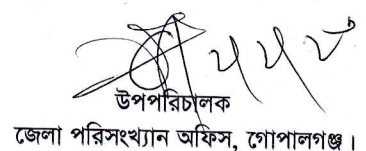 উপপরিচালক
জেলা পরিসংখ্যান অফিস, গোপালগঞ্জ।